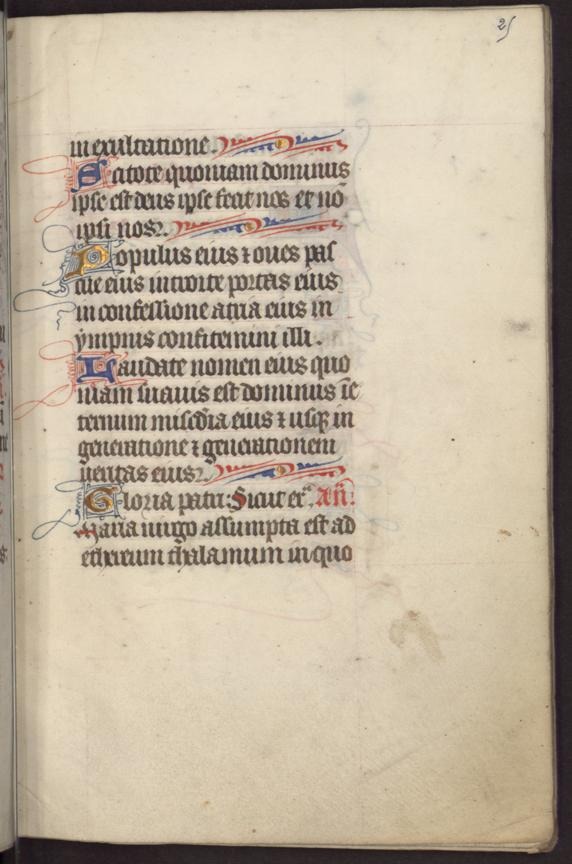 25
in exultatione.
Scitote quoniam dominus
ipse est deus ipse fecit nos et nō
ipsi nos.
Populus eius ⁊ oues pas
cue eius introite portas eius
in confessione atria eius in
ympnis confitemini illi.
Laudate nomen eius quo
niam suauis est dominus ī e
ternum mīscd̄ia eius ⁊ usq̄ in
generatione ⁊ generationem
ueritas eius.
Gloria patri: Sicut er̄. Añ.
Maria uirgo assumpta est ad
ethereum thalamum in quo